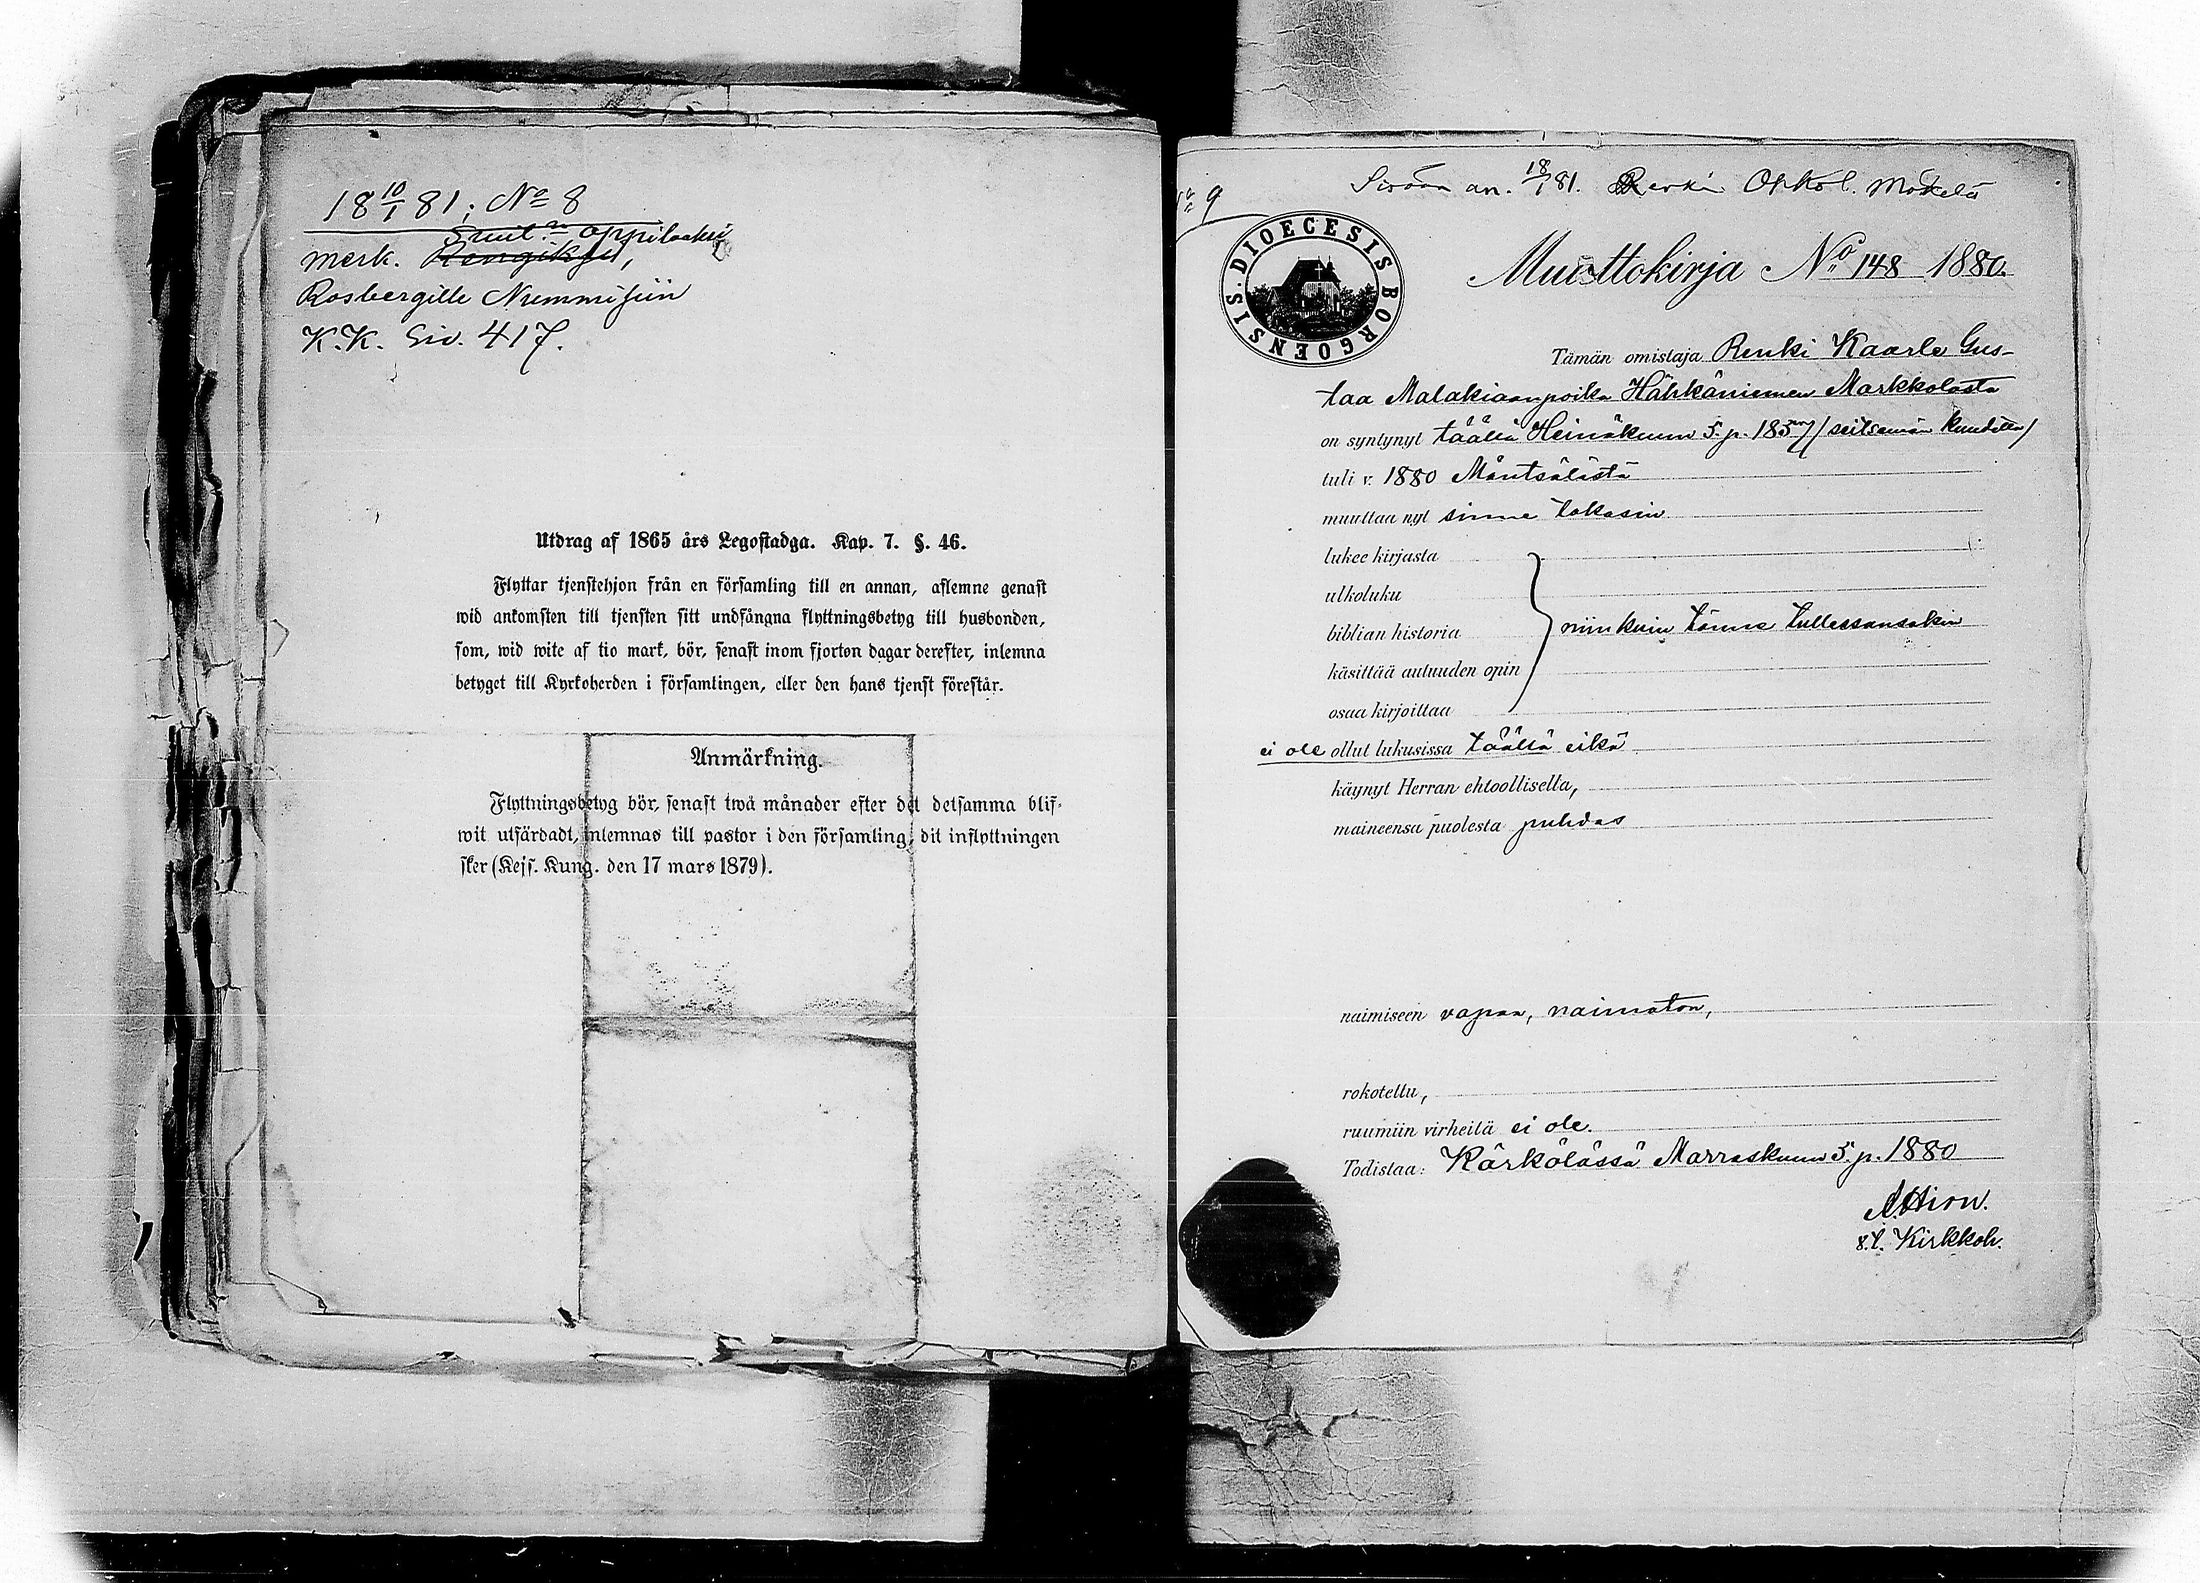 18 10/1 81; No 8
Suut.n oppilaaksi
merk. Rengiksi,
Rosbergille Nummisiin
K.K. Siv. 417.
Utdrag af 1865 års Legostadga. Kap. 7. §. 46.
Flyttar tjenstehjon från en församling till en annan, aflemne genast
wid ankomsten till tjensten sitt undfångna flyttningsbetyg till husbonden,
som, wid wite af tio mark, bör, senast inom fjorton dagar derefter, inlemna
betyget till Kyrkoherden i församlingen, eller den hans tjenst förestår.
Anmärkning.
Flyttningsbetyg bör, senast twå månader efter det detsamma blif-
wit utfärdadt, inlemnas till pastor i den församling, dit inflyttningen
sker (Kejs. Kung. den 17 mars 1879).
No 9
Sisään an. 18/1 81. Renki Mäkelä
DIOECESIS BORGOENSIS.
Muuttokirja No 148 1880.
Tämän omistaja Renki Kaarle Gus-
taa Malakiaanpoika Hähkäniemen Markkolasta
on syntynyt täällä Heinäkuun 5. p. 1857 /seitsemän kuudetta/
tuli v. 1880 Mäntsälästä
muuttaa nyt sinne takasin
lukee kirjasta
ulkoluku
biblian historia niinkuin tänne tullessansakin
käsittää autuuden opin
osaa kirjoittaa
ei ole ollut lukusissa täällä eikä
käynyt Herran ehtoollisella,
maineensa puolesta puhdas
naimiseen vapaa, naimaton,
rokotettu,
ruumiin virheitä ei ole.
Todistaa: Kärkölässä Marraskuun 5. p. 1880
A. Hirn.
v.t. Kirkkoh.